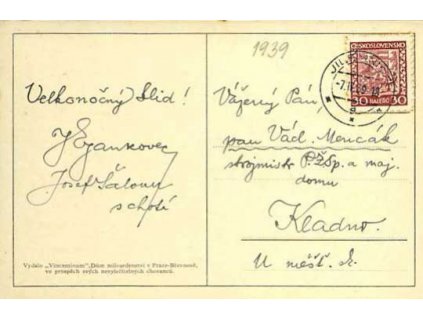 Velkonočný klid!
Josef Šalom
s chotí
Vydalo „Vincentinum“, Dům milosrdenství v Praze-Břevnově,
ve prospěch svých nevyléčitelných chovanců.
1939
ČESKOSLOVENSKO
30 HALÉŘŮ 30
Vážený Pán,
pan Vád. Mencák
strojmistr P.ŽSp. a maj.
domu
Kladno.
U měšť.